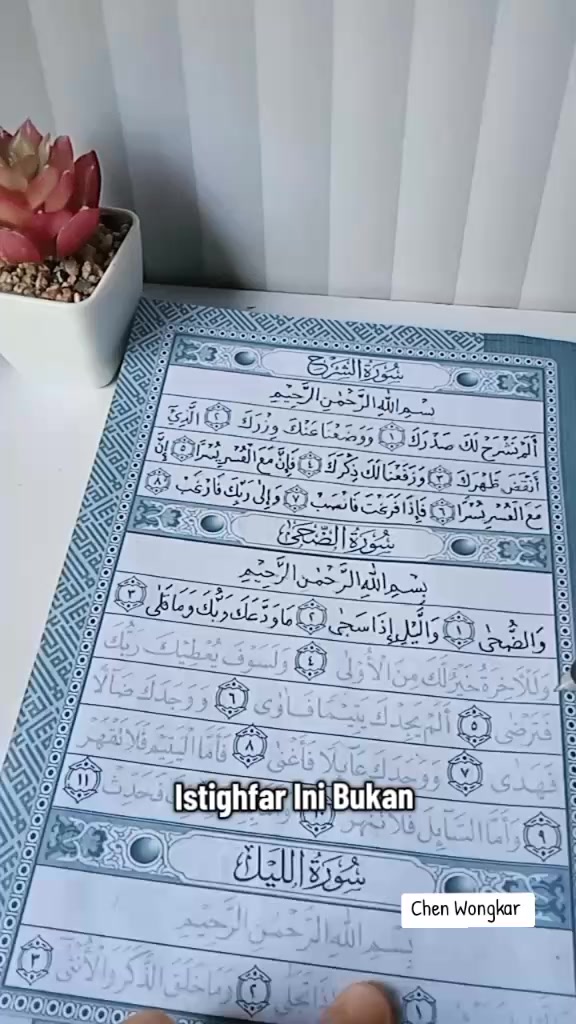 سُورَةُ الشَّرْحِ
بِسْمِ اللهِ الرَّحْمٰنِ الرَّحِيْمِ
اَلَمْ نَشْرَحْ لَكَ صَدْرَكَ ١ وَوَضَعْنَا عَنْكَ وِزْرَكَ ٢ الَّذِيْٓ
اَنْقَضَ ظَهْرَكَ ٣ وَرَفَعْنَا لَكَ ذِكْرَكَ ٤ فَاِنَّ مَعَ الْعُسْرِ يُسْرًا ٥ اِنَّ
مَعَ الْعُسْرِ يُسْرًا ٦ فَاِذَا فَرَغْتَ فَانْصَبْ ٧ وَاِلٰى رَبِّكَ فَارْغَبْ ٨
سُورَةُ الضُّحَى
بِسْمِ اللهِ الرَّحْمٰنِ الرَّحِيْمِ
وَالضُّحٰى ١ وَالَّيْلِ اِذَا سَجٰى ٢ مَا وَدَّعَكَ رَبُّكَ وَمَا قَلٰى ٣
وَلَلْاٰخِرَةُ خَيْرٌ لَّكَ مِنَ الْاُوْلٰى ٤ وَلَسَوْفَ يُعْطِيْكَ رَبُّكَ
فَتَرْضٰى ٥ اَلَمْ يَجِدْكَ يَتِيْمًا فَاٰوٰى ٦ وَوَجَدَكَ ضَآلًّا
فَهَدٰى ٧ وَوَجَدَكَ عَآىِٕلًا فَاَغْنٰى ٨ فَاَمَّا الْيَتِيْمَ فَلَا تَقْهَرْ
٩ وَاَمَّا السَّآىِٕلَ فَلَا تَنْهَرْ ١٠ فَحَدِّثْ ١١
Istighfar Ini Bukan
سُورَةُ اللَّيْلِ
Chen Wongkar
بِسْمِ اللهِ الرَّحْمٰنِ الرَّحِيْمِ
١ اِذَا تَجَلّٰى ٢ وَمَا خَلَقَ الذَّكَرَ وَالْاُنْثٰى ٣